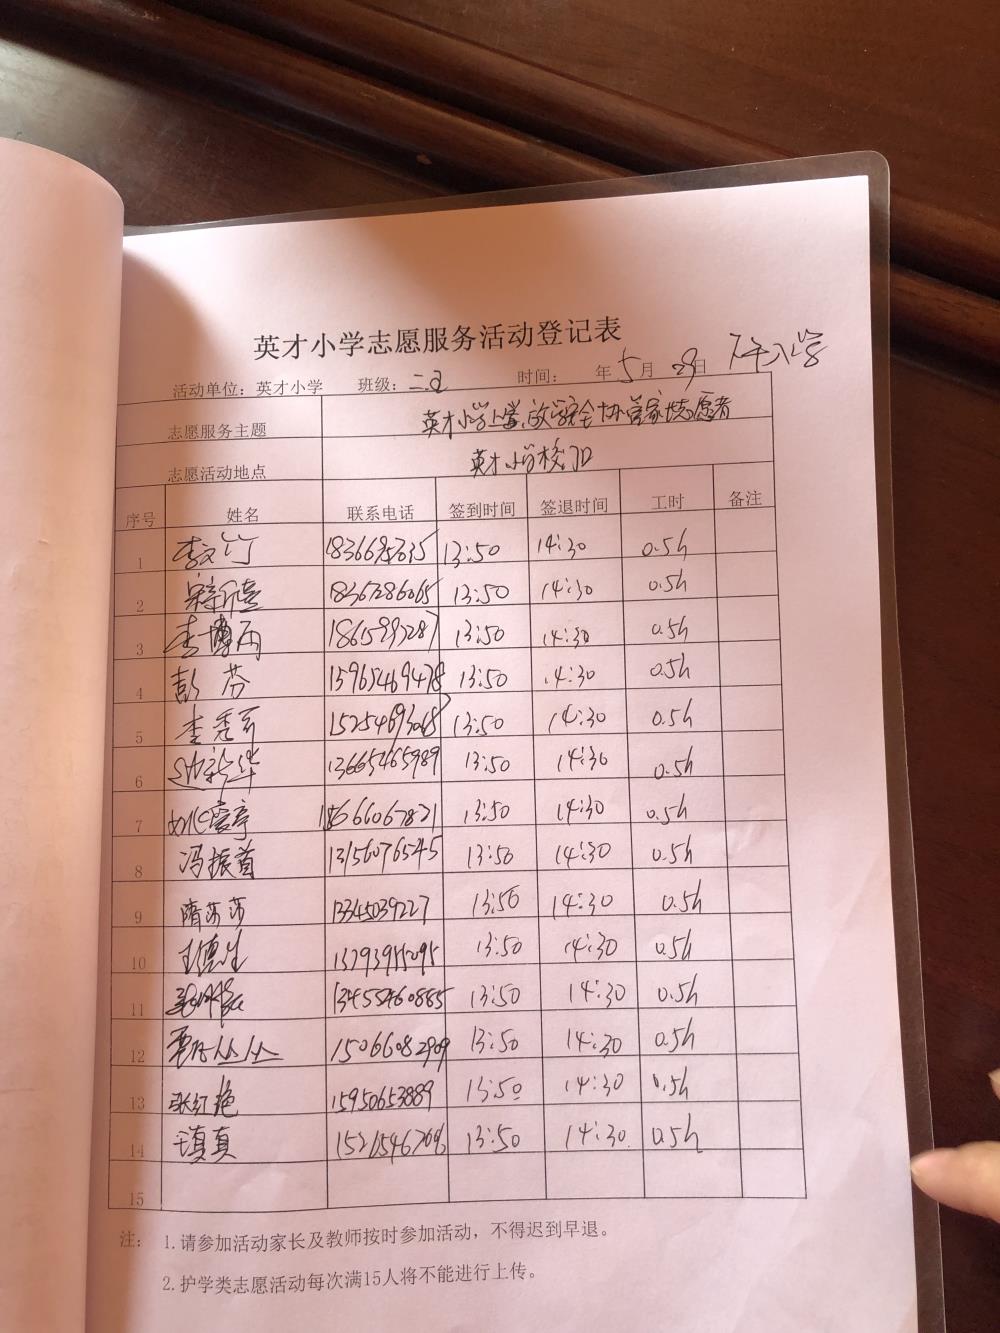 英才小学志愿服务活动登记表
活动单位：英才小学 班级：二.五 时间： 年5月29日 下午入学
志愿服务主题 英才小学上学、放学安全协管家长志愿者
志愿活动地点 英才小学校门口
序号 姓名 联系电话 签到时间 签退时间 工时 备注
1 13:50 14:30 0.5h
2 13:50 14:30 0.5h
3 李博雨 13:50 14:30 0.5h
4 彭芬 15965469478 13:50 14:30 0.5h
5 李秀 15254693065 13:50 14:30 0.5h
6 13665465989 13:50 14:30 0.5h
7 姚雪亭 18566067821 13:50 14:30 0.5h
8 冯振首 13156076545 13:50 14:30 0.5h
9 隋莎莎 13345039227 13:50 14:30 0.5h
10 王德生 13793955095 13:50 14:30 0.5h
11 13455460885 13:50 14:30 0.5h
12 15066082909 13:50 14:30 0.5h
13 张红艳 15950653889 13:50 14:30 0.5h
14 王真真 15215467096 13:50 14:30 0.5h
15
注： 1.请参加活动家长及教师按时参加活动，不得迟到早退。
2.护学类志愿活动每次满15人将不能进行上传。